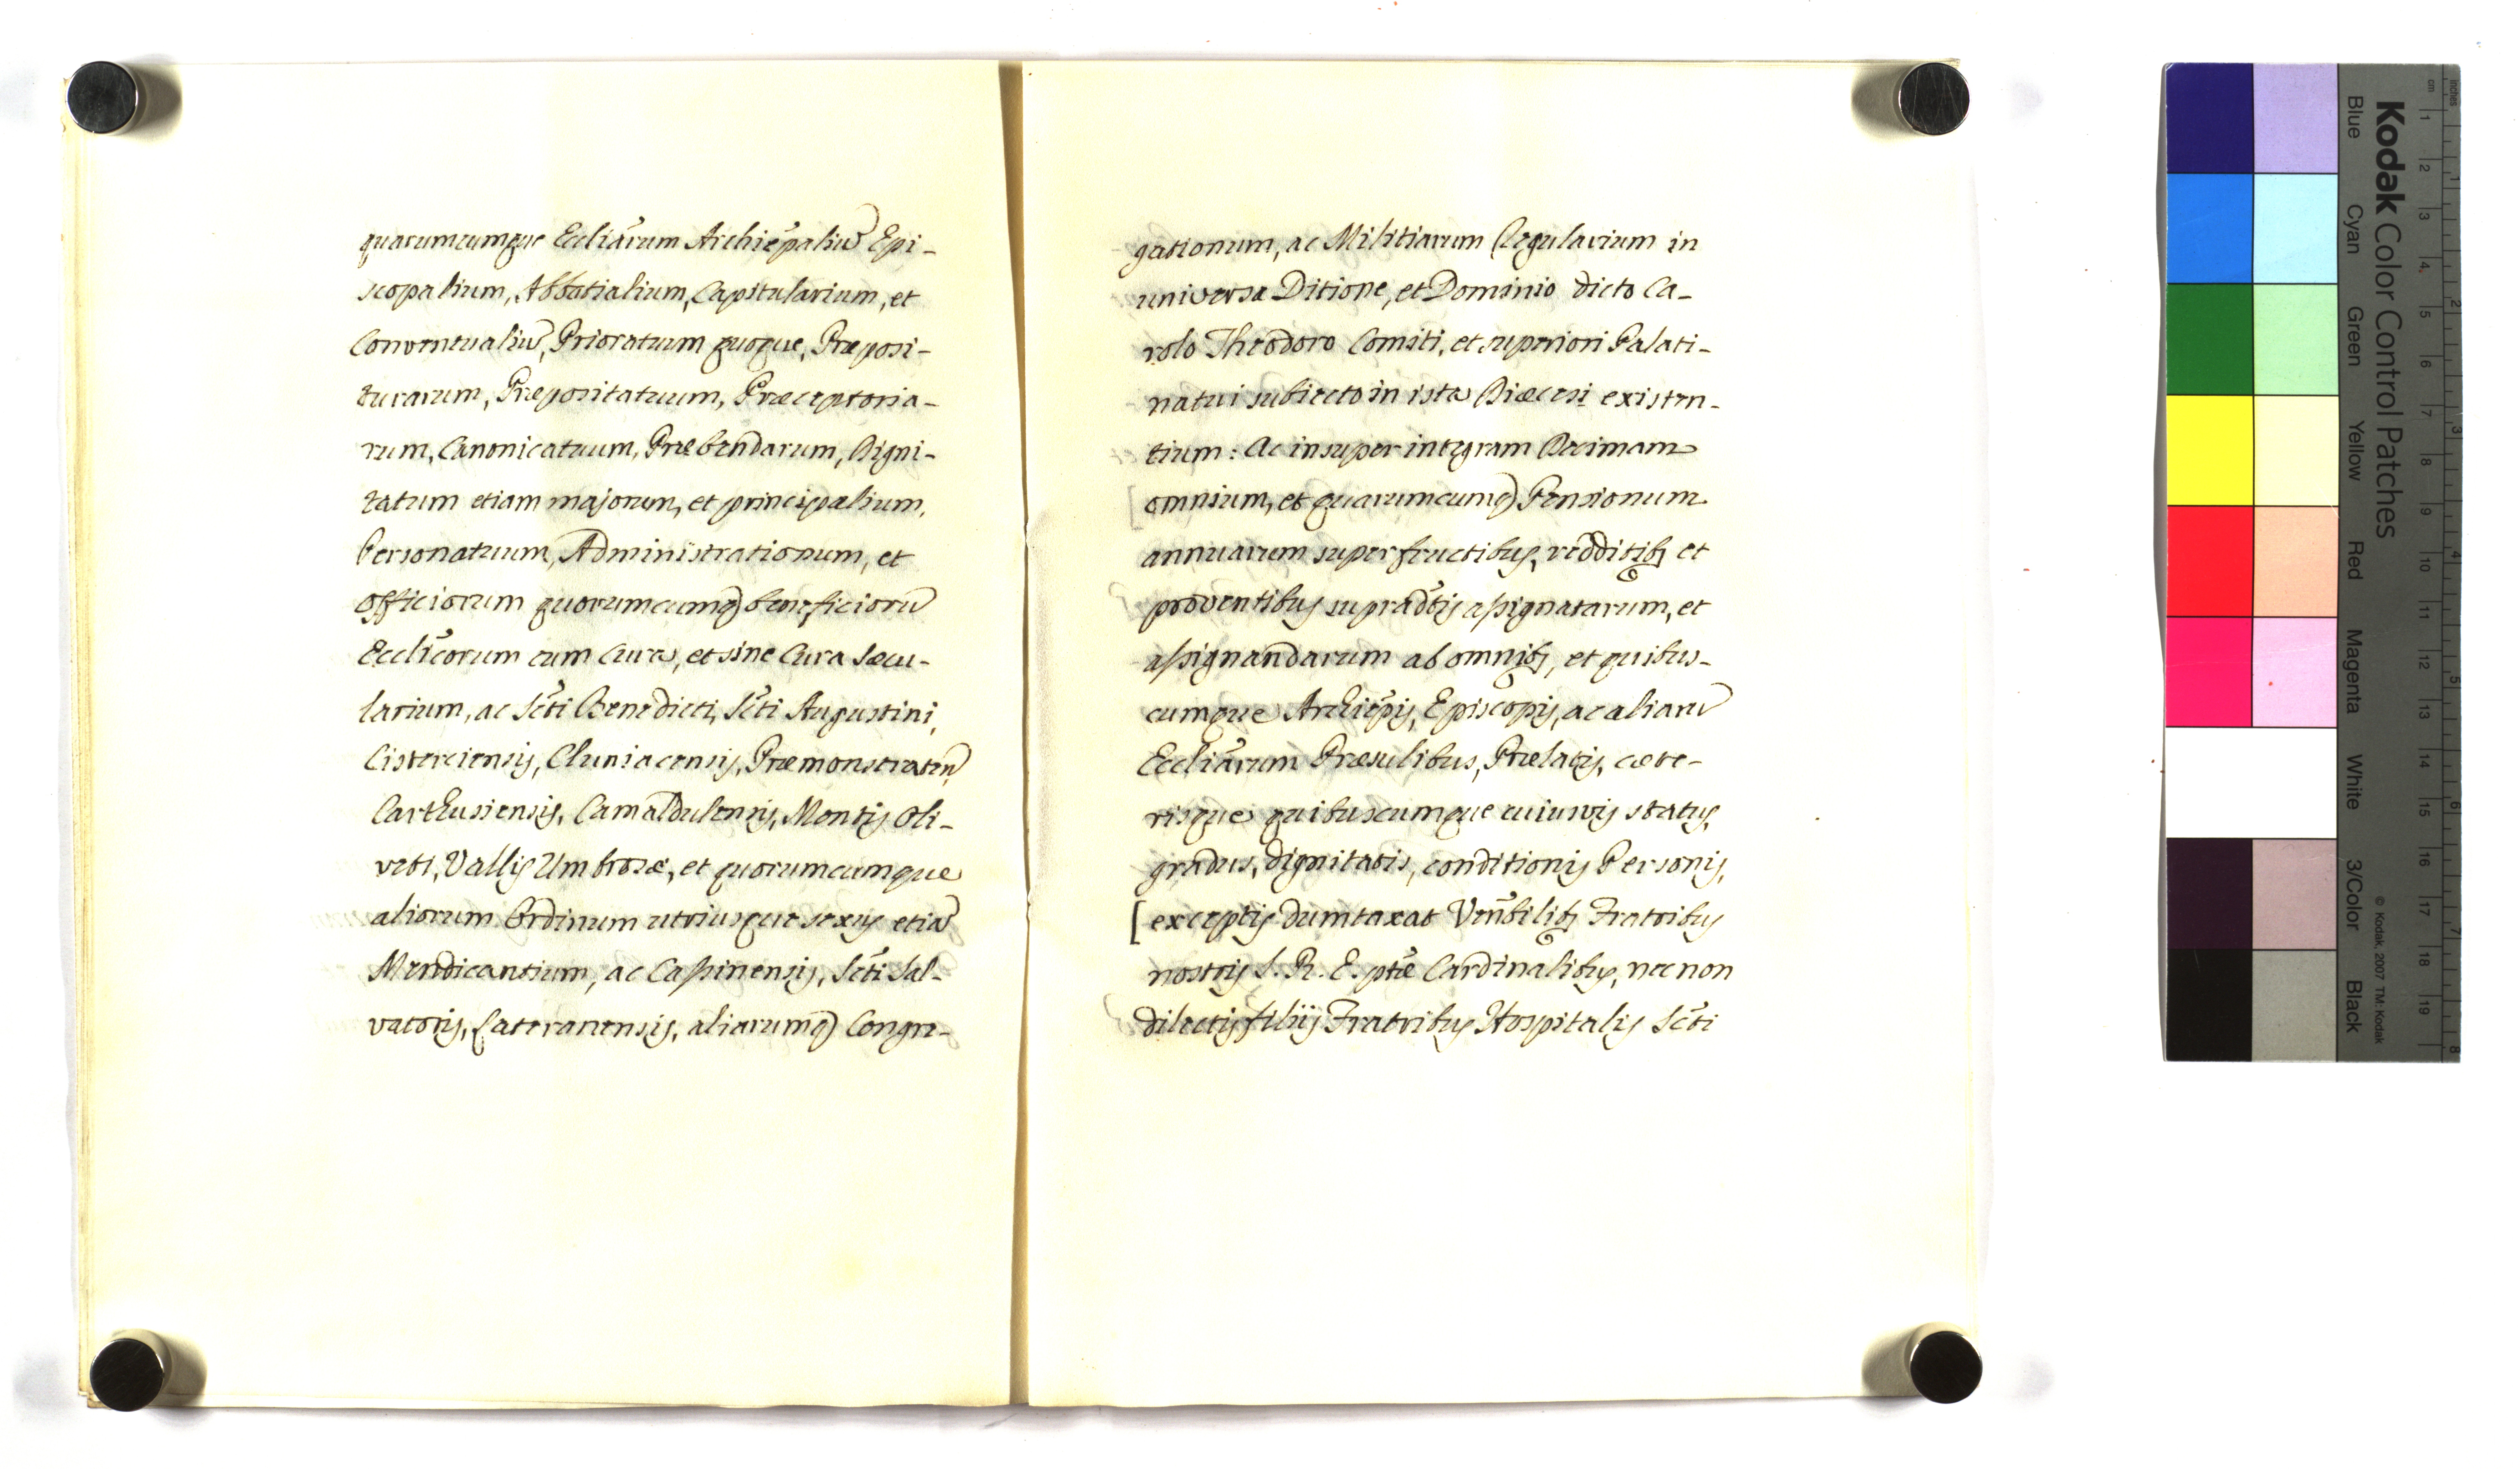 quarumcumque Eccliarum Archiepaliu Epi-
scopalium, Abbatialium, Capitularium, et
Conventualiu, Prioratuum quoque, Præposi-
turarum, Præpositatuum, Præceptoria-
rum, Canonicatuum, Præbendarum, Digni-
tatum etiam majorum, et principalium,
Personatuum, Administrationum, et
Officiorum quorumcumq beneficioru
Ecclicorum cum Cura, et sine Cura Sæcu-
larium, ac Scti Benedicti, Scti Augustini,
Cisterciensis, Cluniacensis, Præmonstraten,
Carthusiensis, Camaldulensis, Montis Oli-
veti, Vallis Umbrosæ, et quorumcumque
aliorum Ordinum utriusque sexus etia
Mendicantium, ac Cassinensis, Scti Sal-
vatoris, Lateranensis, aliarumq Congre-
gationum, ac Militiarum Regularium in
universa Ditione, et Dominio dicto Ca-
rolo Theodoro Comiti, et superiori Palati-
natui subiecto in ista Diæcesi existen-
tium: Ac insuper integram Decimam
omnium, et quarumcumq Pensionum
annuarum super fructibus, redditib; et
proventibus supradtis assignatarum, et
assignandarum ab omnib;, et quibus-
cumque Archiepis, Episcopis, ac aliaru
Eccliarum Præsulibus, Prælatis, cæte-
risque quibuscumque cuiusvis status,
gradus, dignitatis, conditionis Personis,
[exceptis dumtaxat Venbilib; Fratribus
nostris S. R. E. ptæ Cardinalibus, necnon
dilectis filijs Fratribus Hospitalis Scti
Kodak Color Control Patches
Blue Cyan Green Yellow Red Magenta White 3/Color Black
© Kodak, 2007 TM: Kodak
inches 1 2 3 4 5 6 7 8
cm 1 2 3 4 5 6 7 8 9 10 11 12 13 14 15 16 17 18 19